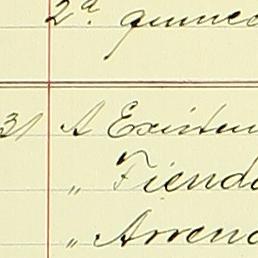 2ª quince
31 A Existen
„ Tiend
„ Arrend